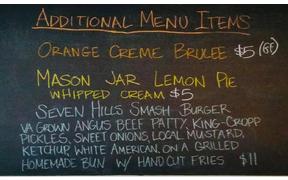 ADDITIONAL MENU ITEMS
ORANGE CREME BRULEE $5 (GF)
MASON JAR LEMON PIE
WHIPPED CREAM $5
SEVEN HILLS SMASH BURGER
VA GROWN ANGUS BEEF PATTY, KING-CROPP
PICKLES, SWEET ONIONS, LOCAL MUSTARD,
KETCHUP, WHITE AMERICAN, ON A GRILLED
HOMEMADE BUN W/ HAND CUT FRIES $11